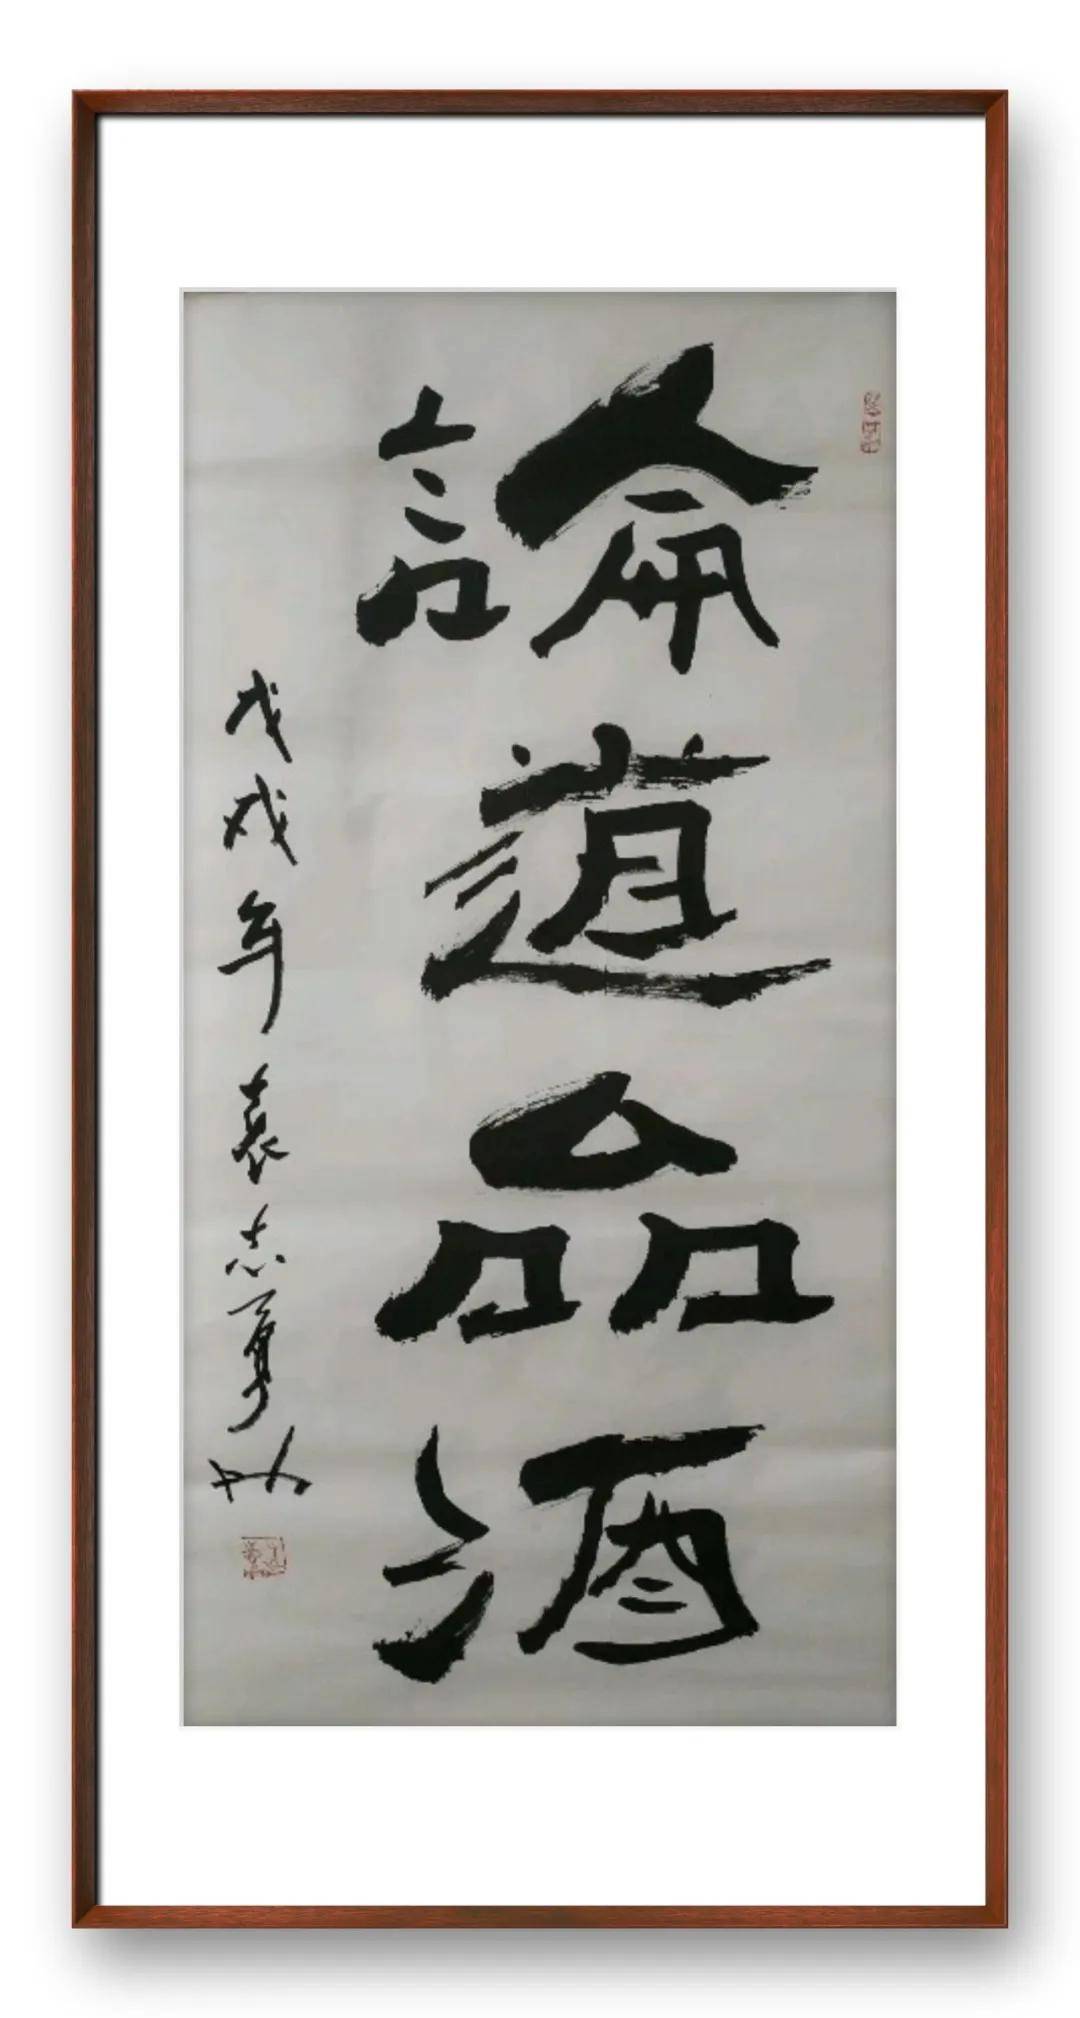 論道品酒
戊戌年袁志勇